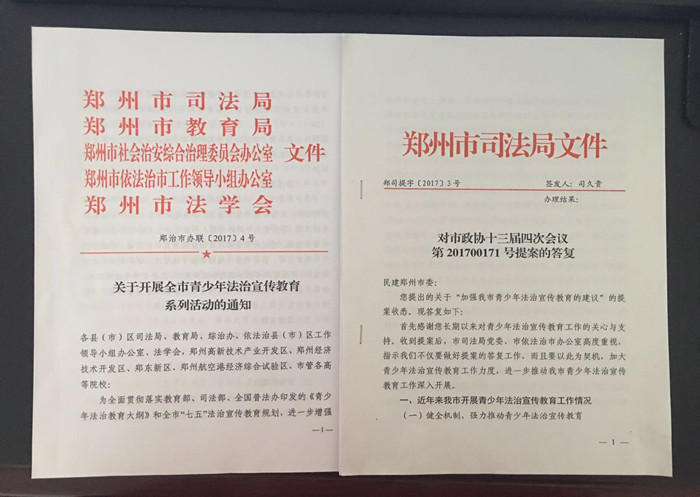 郑州市司法局
郑州市教育局
郑州市社会治安综合治理委员会办公室 文件
郑州市依法治市工作领导小组办公室
郑州市法学会
郑治市办联〔2017〕4号
关于开展全市青少年法治宣传教育
系列活动的通知
各县（市）区司法局、教育局、综治办、依法治县（市）区工作
领导小组办公室、法学会，郑州高新技术产业开发区、郑州经济
技术开发区、郑东新区、郑州航空港经济综合试验区，市管各高
等院校：
为全面贯彻落实教育部、司法部、全国普法办印发的《青少
年法治教育大纲》和全市“七五”法治宣传教育规划，进一步增强
—1—
郑州市司法局文件
郑司提字〔2017〕3号 签发人：司久贵
办理结果：
对市政协十三届四次会议
第201700171号提案的答复
民建郑州市委：
您提出的关于“加强我市青少年法治宣传教育的建议”的提
案收悉，现答复如下：
首先感谢您长期以来对青少年法治宣传教育工作的关心与支
持。收到提案后，市司法局党委、市依法治市办公室高度重视，
指示我们不仅要做好提案的答复工作，而且要以此为契机，加大
青少年法治宣传教育工作力度，进一步推动我市青少年法治宣传
教育工作深入开展。
一、近年来我市开展青少年法治宣传教育工作情况
（一）健全机制、强力推动青少年法治宣传教育
—1—